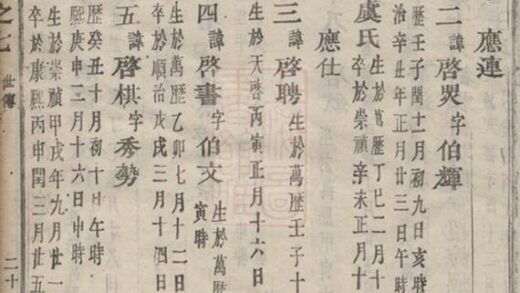 應連
二諱啓字伯輝
歷壬子閏十一月初九日亥時
治辛丑年正月廿三日午時
虞氏生於萬歷丁巳二月十
卒於崇禎辛未正月十
應仕
三諱啓聘生於萬歷壬子十
生於天啓丙寅正月十六日
四諱啓書字伯文生於萬歷
寅時
生於萬歷乙卯七月十二日
卒於順治庚戌三月十四日
五諱啓棋字秀勢
歷癸丑十月初十日午時
熙庚申三月十六日申時
生於崇禎甲戌年九月廿一
卒於康熙丙申閏三月廿五
之七 世傳 二十